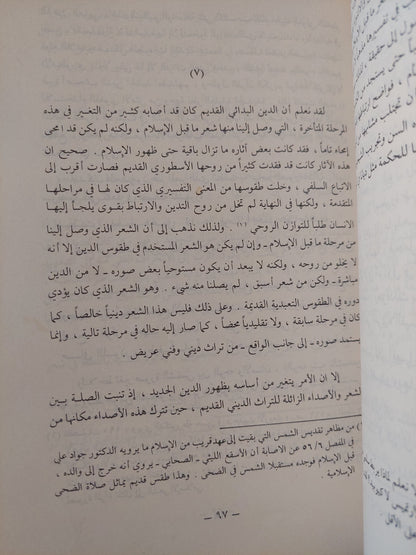 (٧)
لقد نعلم أن الدين البدائي القديم كان قد أصابه كثير من التغيير في هذه
المرحلة المتأخرة ، التي وصل إلينا منها شعر ما قبل الإسلام ، ولكنه لم يكن قد إمحى
إمحاء تاماً ، فقد كانت بعض آثاره ما تزال باقية حتى ظهور الإسلام . صحيح إن
هذه الآثار كانت قد فقدت كثيراً من روحها الأسطوري القديم فصارت أقرب إلى
الاتباع السلفي ، وخلت طقوسها من المعنى التفسيري الذي كان لها في مراحلها
المتقدمة ، ولكنها في النهاية لم تخل من روح التدين والارتباط بقوى يلجأ إليها
الانسان طلباً للتوازن الروحي (١) . ولذلك نذهب إلى أن الشعر الذي وصل إلينا
من مرحلة ما قبل الإسلام ـ وإن لم يكن هو الشعر المستخدم في طقوس الدين إلا أنه
لا يخلو من روحه ، ولكنه لا يبعد أن يكون مستوحياً بعض صوره ـ لا من الدين
مباشرة ـ ولكن من شعر أسبق ، لم يصلنا منه شيء . وهو الشعر الذي كان يؤدي
دوره في الطقوس التعبدية القديمة . وعلى ذلك فليس هذا الشعر دينياً خالصاً ، كما
كان في مرحلة سابقة ، ولا تقليدياً محضاً ، كما صار إليه حاله في مرحلة تالية ، وإنما
يستمد صوره ـ إلى جانب الواقع ـ من تراث ديني وفني عريض .
إلا ان الأمر يتغير من أساسه بظهور الدين الجديد ، إذ تنبت الصلة بين
الشعر والأصداء الزائلة للتراث الديني القديم ، حين تترك هذه الأصداء مكانها من
من مظاهر تقديس الشمس التي بقيت إلى عهد قريب من الإسلام ما يرويه الدكتور جواد علي
في المفصل ٥٦/٦ عن الاصابة أن الأسفع الليثي ـ الصحابي ـ يروي أنه خرج إلى والده ،
قبل الإسلام فوجده مستقبلا الشمس في الضحى . وهذا طقس قديم يماثل صلاة الضحى
الإسلامية .
ـ ٩٧ ـ